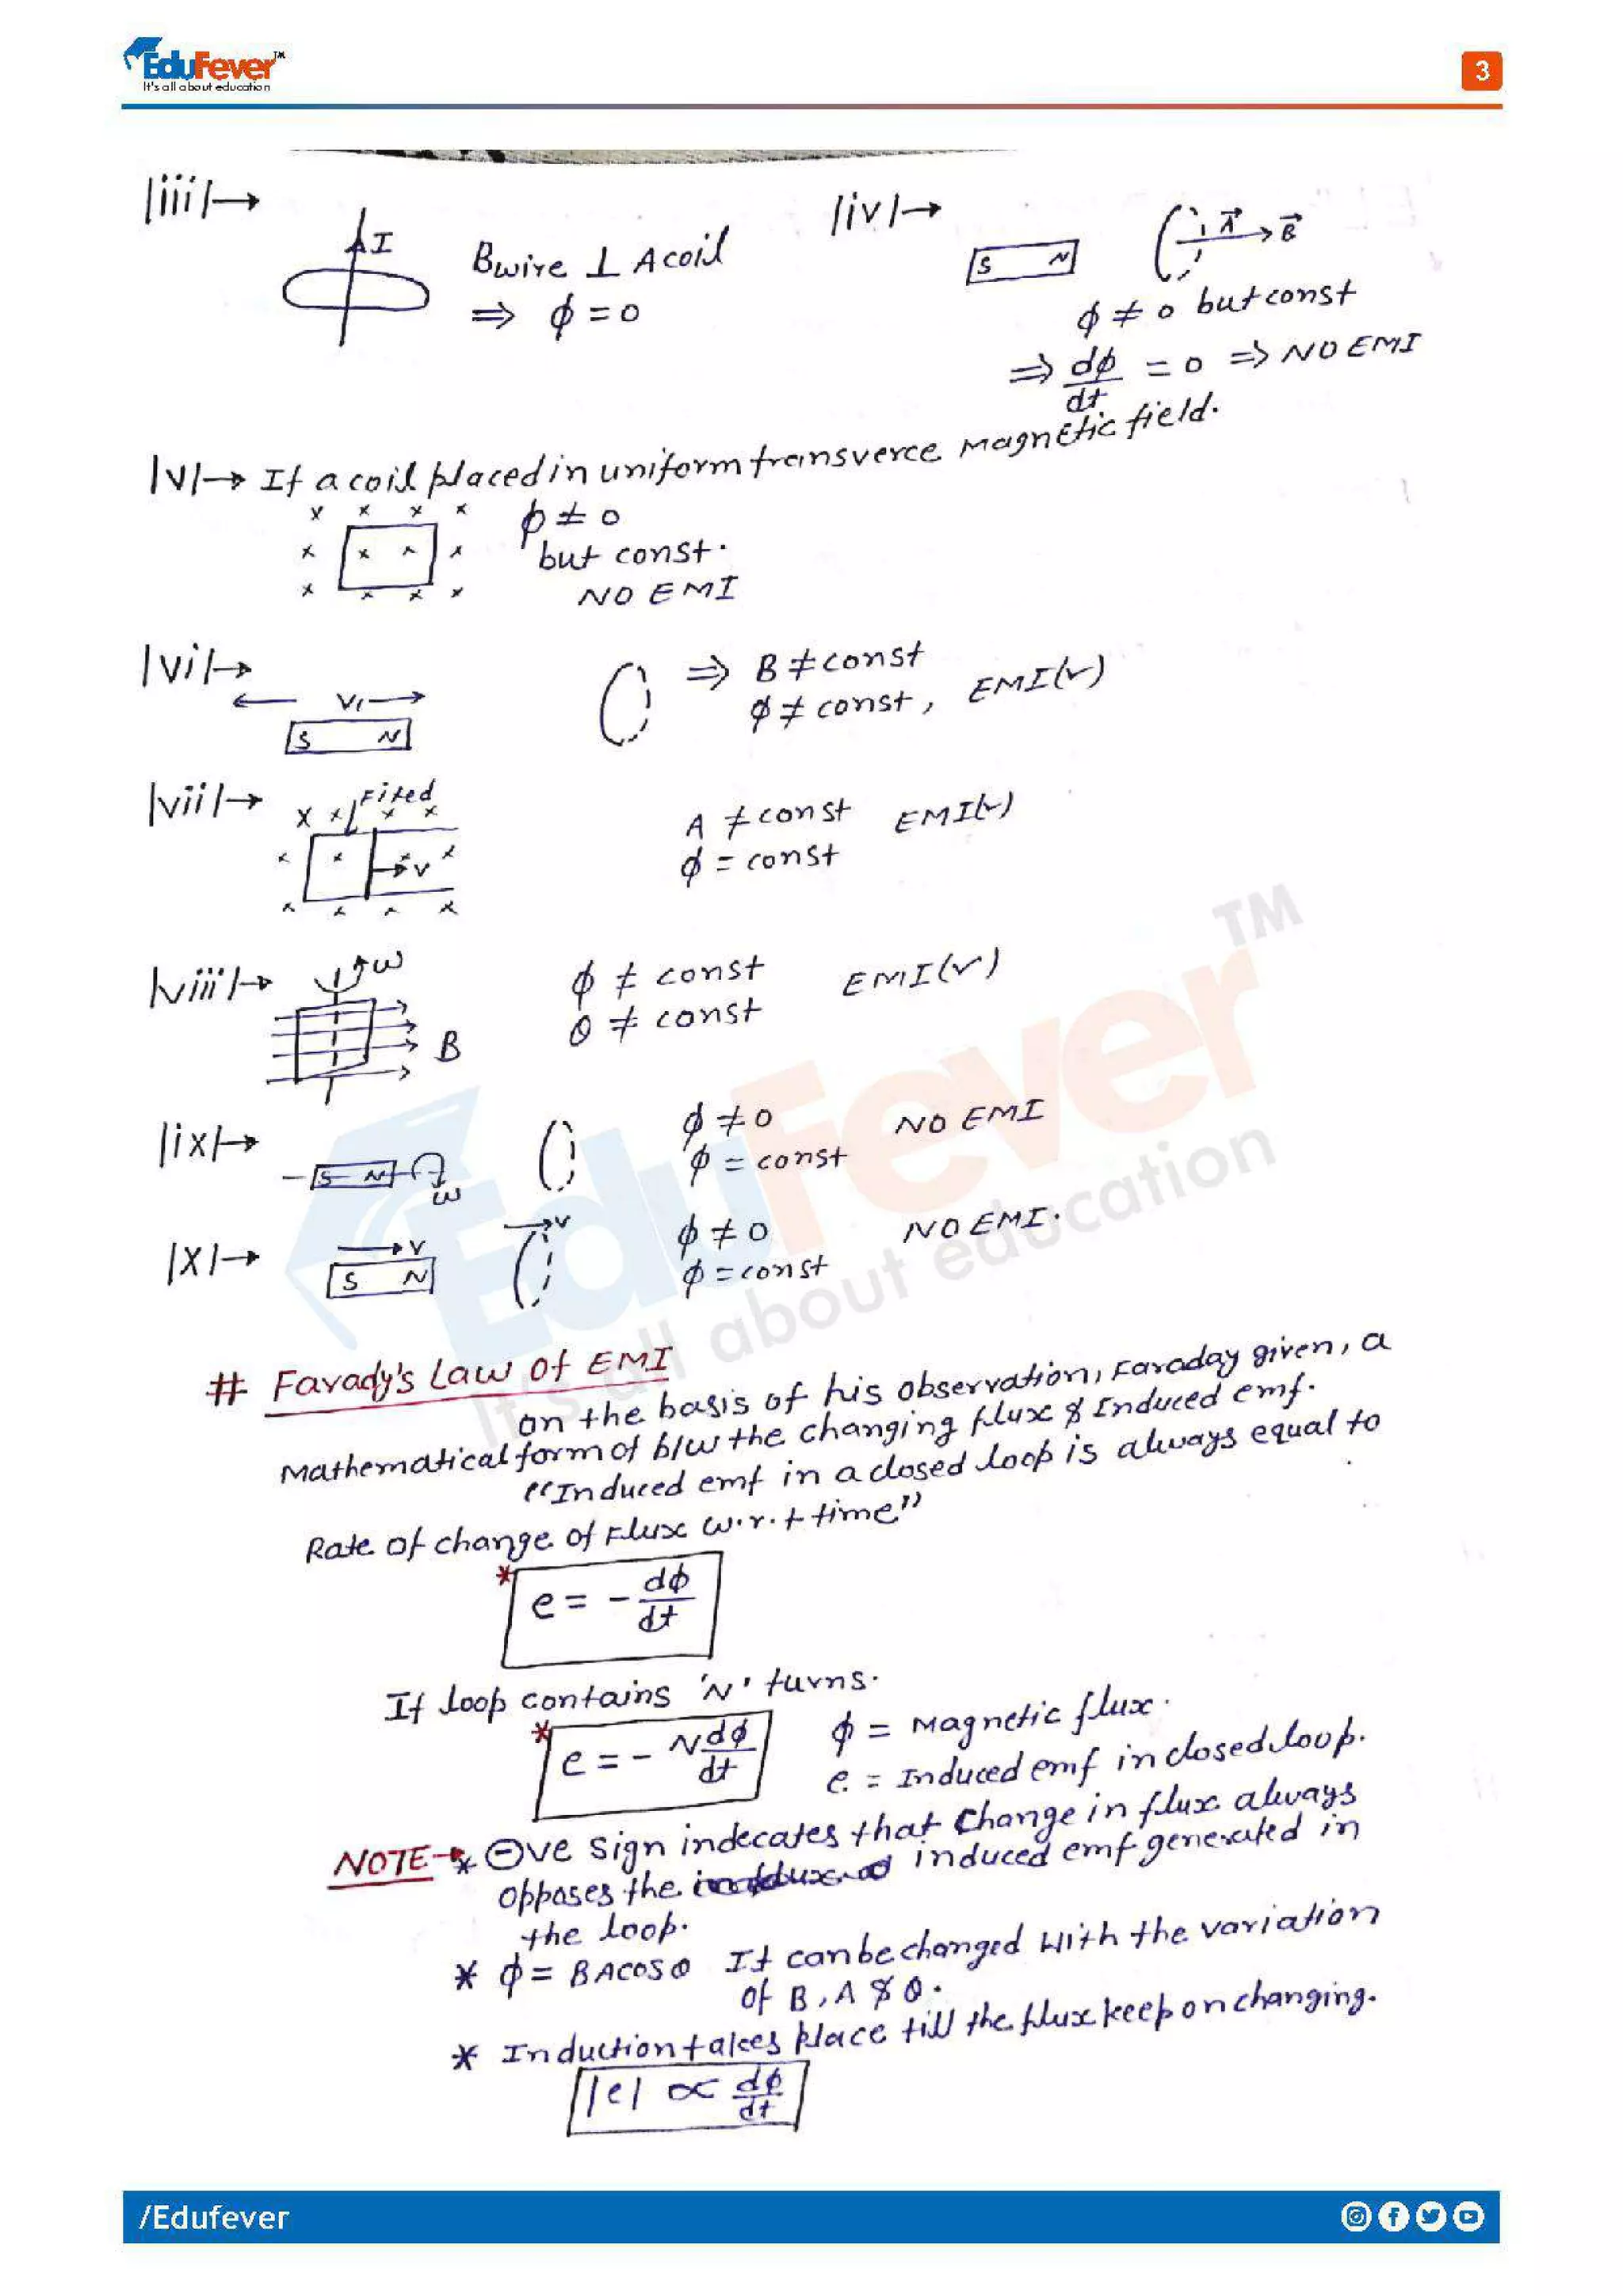 EduFever™
It's all about education
3
|iii|→
I
Bwire ⊥ A coil
⇒ ϕ = 0
|iv|→
S N
A⃗ B⃗
ϕ ≠ 0 but const
⇒ dϕ/dt = 0 ⇒ NO EMI
|v|→ If a coil placed in uniform transverce Magnetic field.
x x x x
x x x x
x x x x
ϕ ≠ 0
but const.
NO EMI
|vi|→
S N
⇒ B ≠ const
ϕ ≠ const, EMI(✓)
|vii|→
Fixed
x x x x
x x x x
→v
x x x x
A ≠ const EMI(✓)
ϕ = const
|viii|→
ω
B
ϕ ≠ const EMI(✓)
θ ≠ const
|ix|→
S N
ω
ϕ ≠ 0 NO EMI
ϕ = const
|x|→
→v →v
S N
ϕ ≠ 0 NO EMI.
ϕ = const
# Farady's Law of EMI
on the basis of his observation, Faraday given, a
Mathematical form of b/w the changing flux & Induced emf.
"Induced emf in a closed loop is always equal to
Rate of change of Flux w.r.t time"
* e = - dϕ/dt
If loop contains 'N' turns.
* e = - Ndϕ/dt
ϕ = Magnetic flux.
e = Induced emf in closed loop.
NOTE→* ⊖ve sign indecates that change in flux always
opposes the induced emf generated in
the loop.
* ϕ = BAcosθ It can be changed with the variation
of B, A & θ.
* Induction takes place till the flux keep on changing.
|e| ∝ dϕ/dt
EduFever™
It's all about education
/Edufever